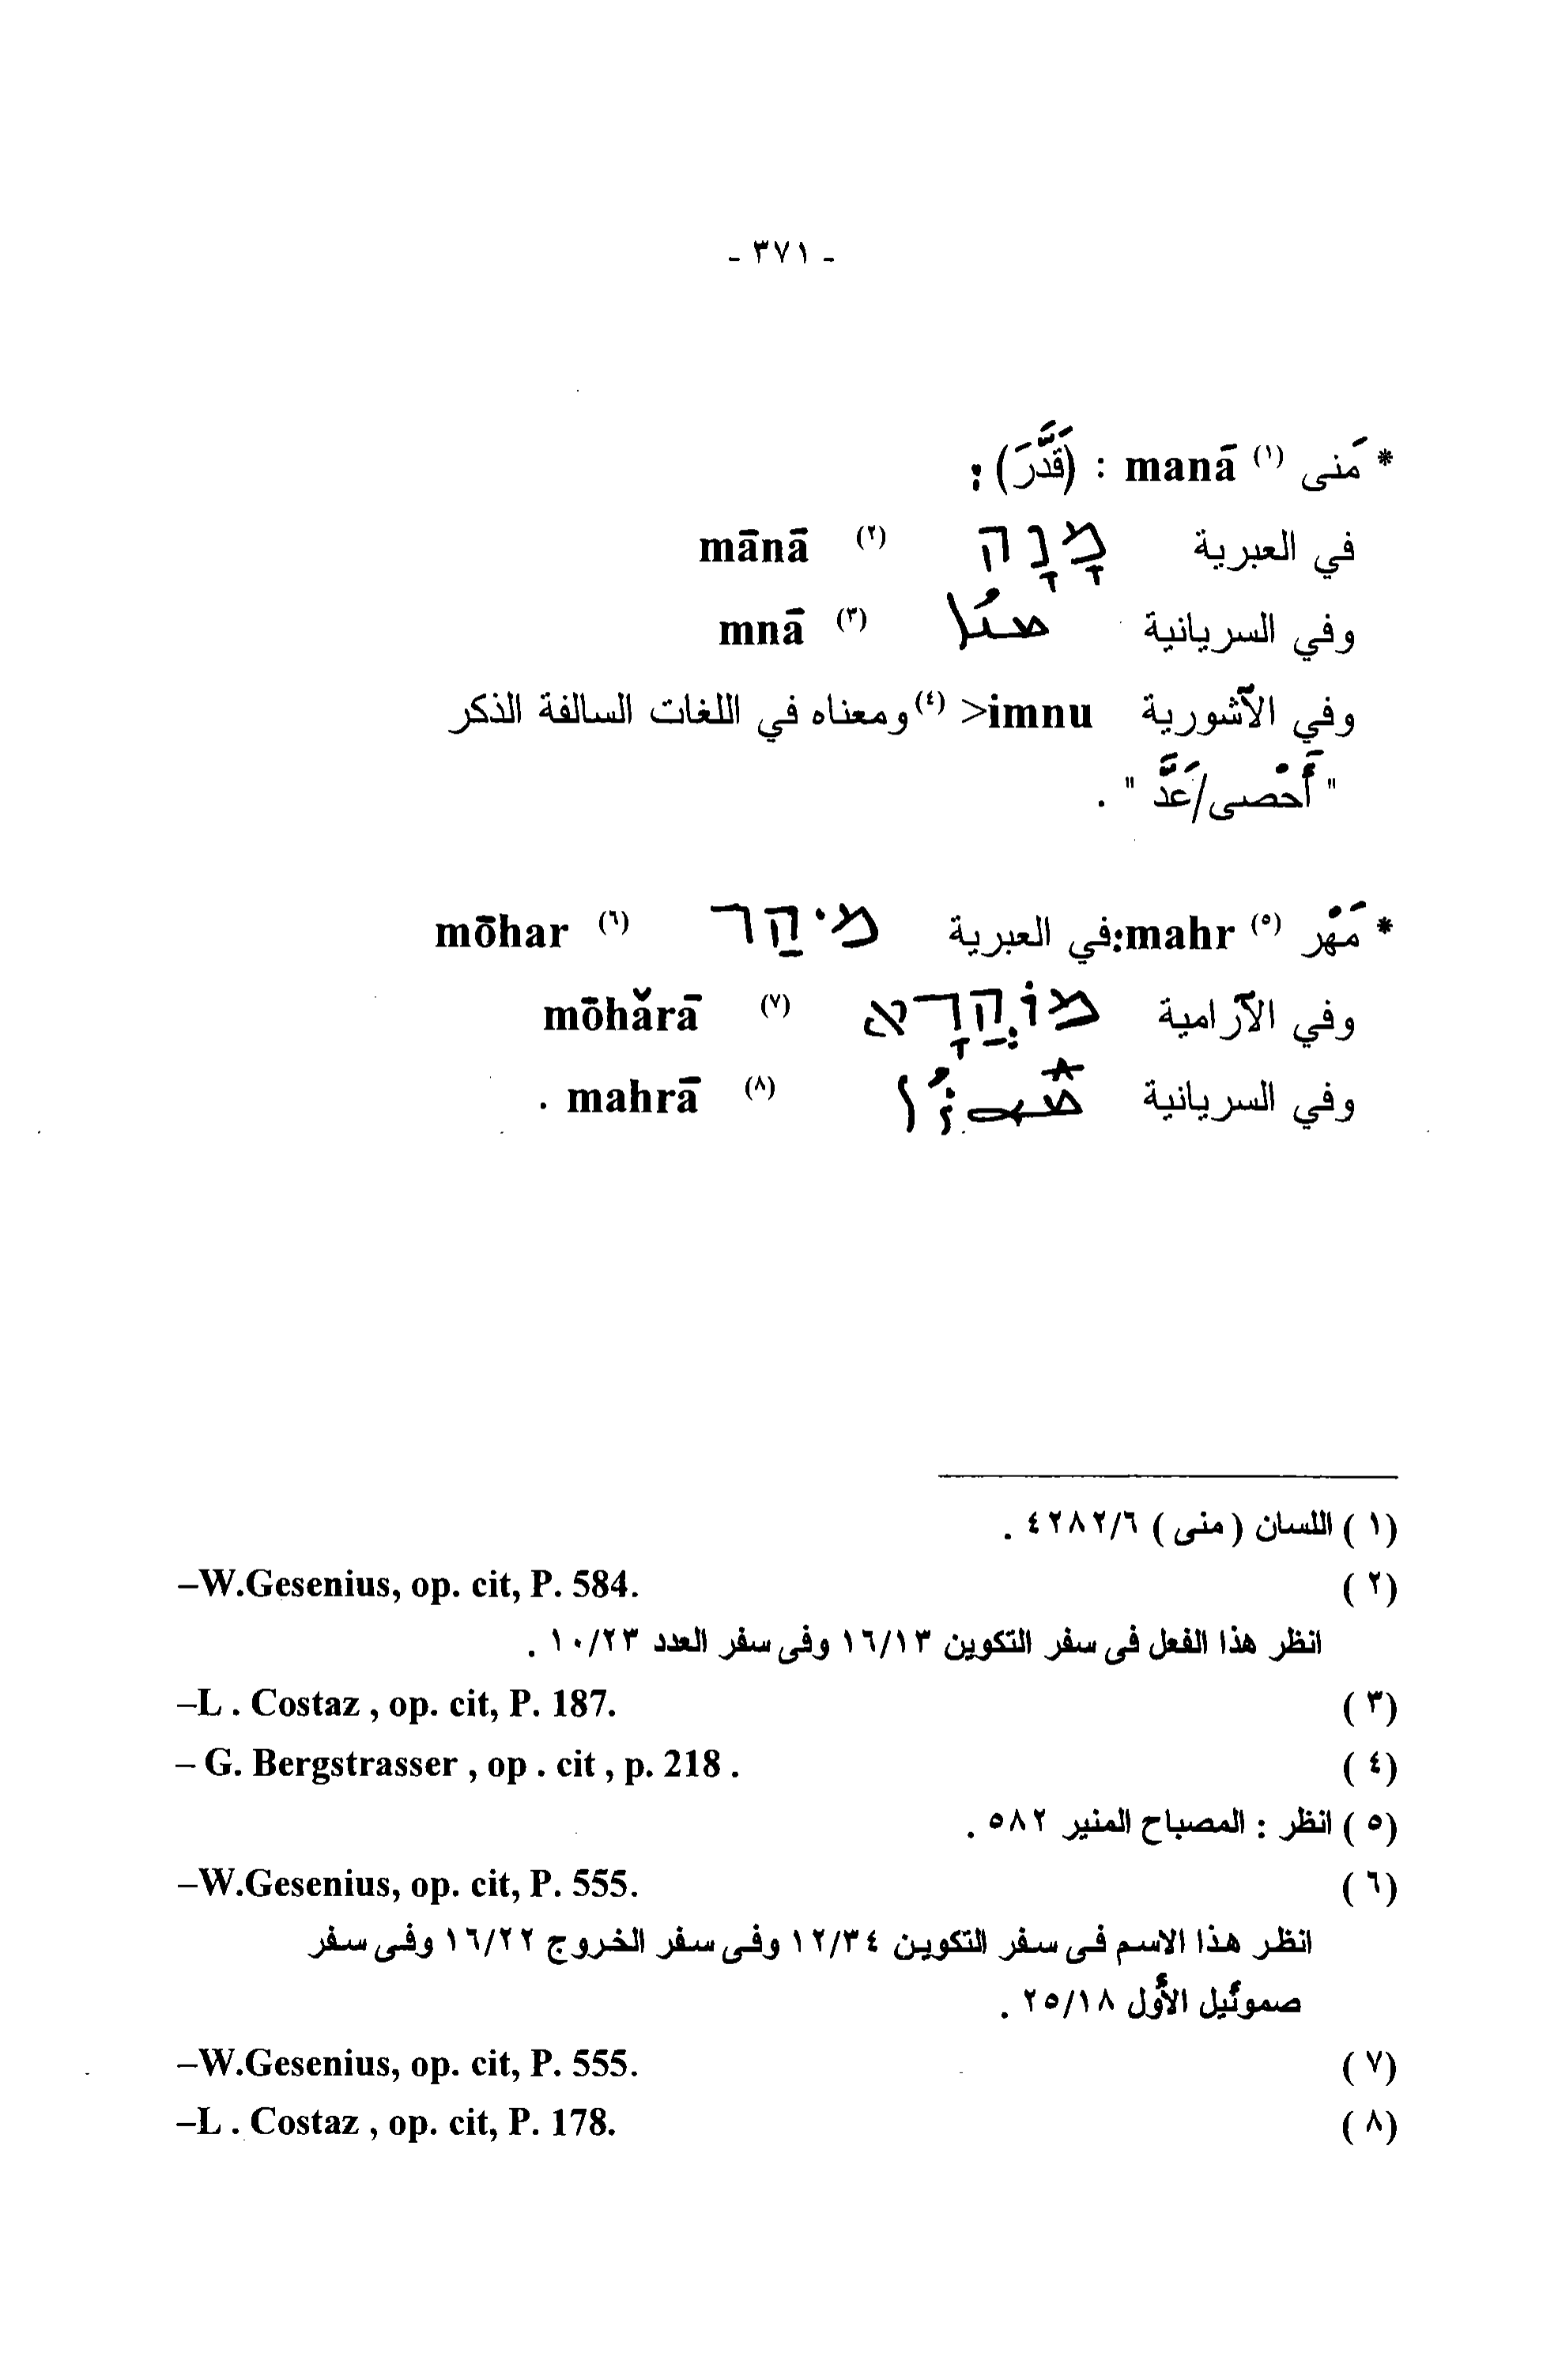 - ٣٧١ -
* مَنى (١) manā : (قَدَّرَ) :
في العبرية מָנָה (٢) mānā
وفي السريانية ܡܢܳܐ (٣) mnā
وفي الآشورية imnu< (٤) ومعناه في اللغات السالفة الذكر
" أَحْصى/عَدَّ " .
* مَهْر (٥) mahr: في العبرية מֹהַר (٦) mōhar
وفي الآرامية מוֹהֲרָא (٧) mōhărā
وفي السريانية ܡܗܪܳܐ (٨) mahrā .
(١) اللسان (منى) ٤٢٨٢/٦ .
(٢) –W.Gesenius, op. cit, P. 584.
انظر هذا الفعل فى سفر التكوين ١٦/١٣ وفى سفر العدد ١٠/٢٣ .
(٣) –L . Costaz , op. cit, P. 187.
(٤) – G. Bergstrasser , op . cit , p. 218 .
(٥) انظر : المصباح المنير ٥٨٢ .
(٦) –W.Gesenius, op. cit, P. 555.
انظر هذا الاسم فى سفر التكوين ١٢/٣٤ وفى سفر الخروج ١٦/٢٢ وفى سفر
صموئيل الأول ٢٥/١٨ .
(٧) –W.Gesenius, op. cit, P. 555.
(٨) –L . Costaz , op. cit, P. 178.